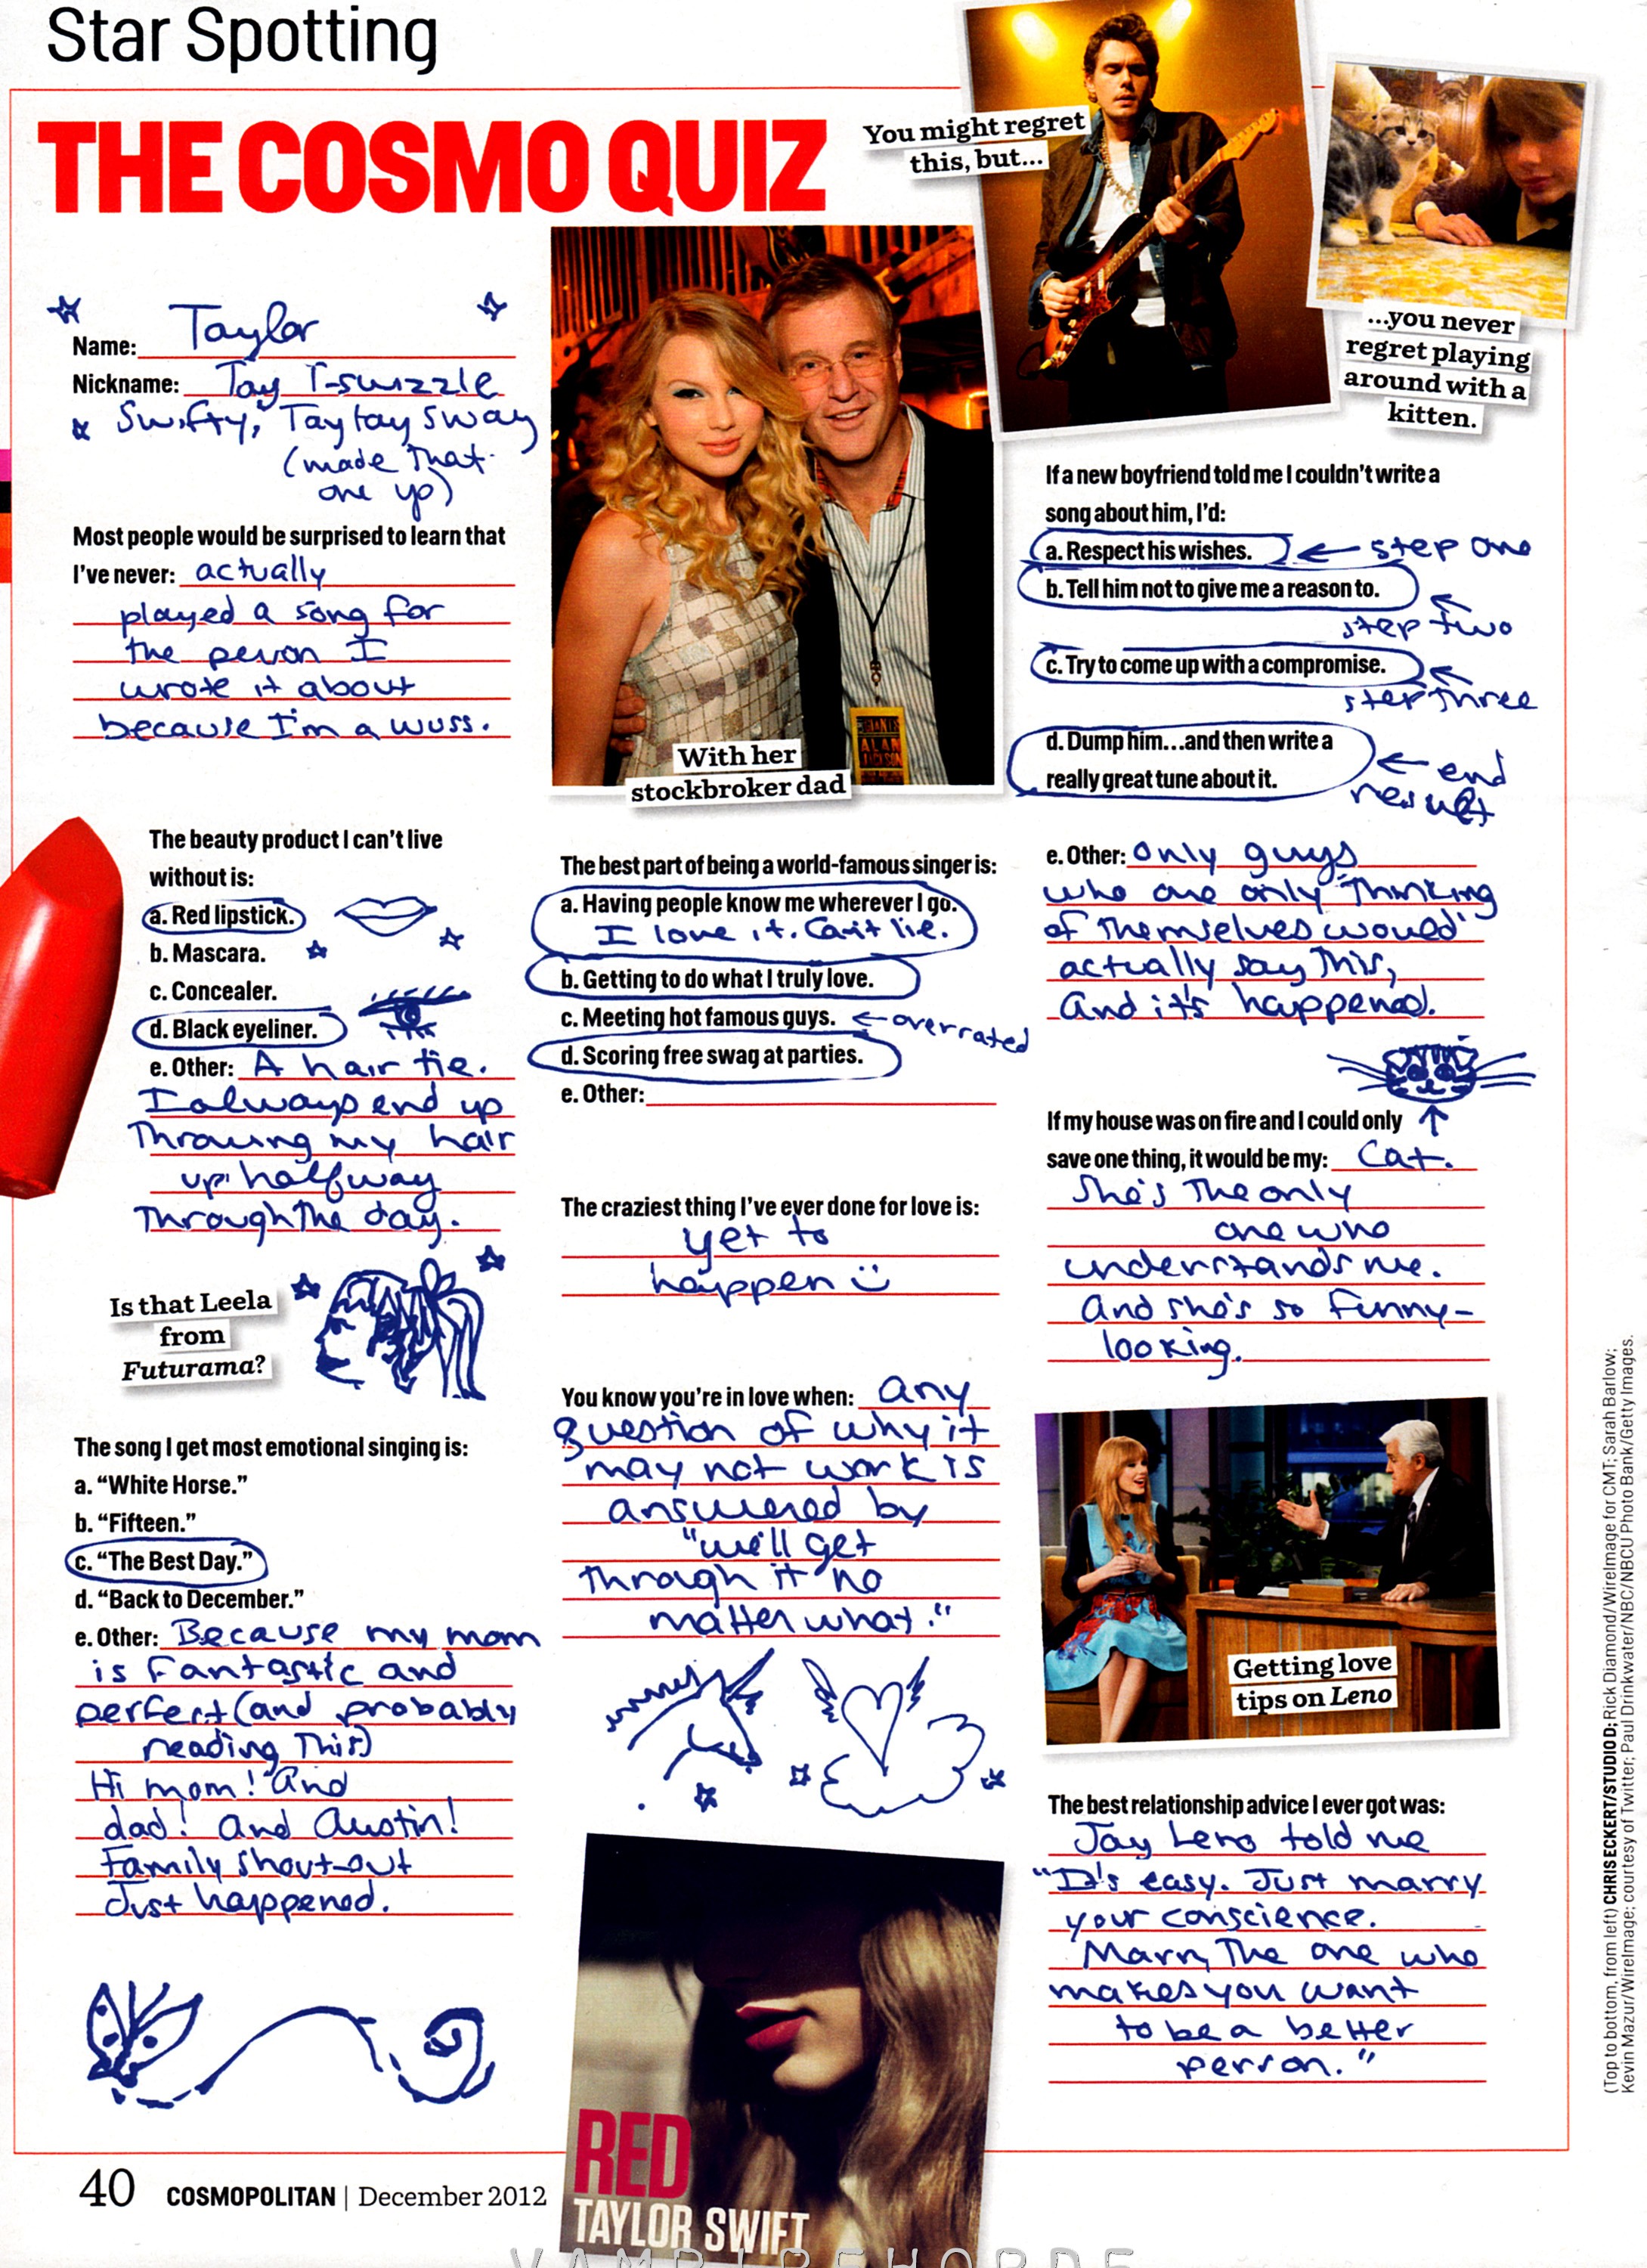 Star Spotting
THE COSMO QUIZ
You might regret
this, but...
...you never
regret playing
around with a
kitten.
Name: Taylor
Nickname: Tay T-swizzle
Swifty, Taytay Sway
(made that
one up)
Most people would be surprised to learn that
I've never: actually
played a song for
the person I
wrote it about
because I'm a wuss.
The beauty product I can't live
without is:
a. Red lipstick.
b. Mascara.
c. Concealer.
d. Black eyeliner.
e. Other: A hair tie.
I always end up
Throwing my hair
up halfway
Through The day.
Is that Leela
from
Futurama?
The song I get most emotional singing is:
a. "White Horse."
b. "Fifteen."
c. "The Best Day."
d. "Back to December."
e. Other: Because my mom
is Fantastic and
perfect (and probably
reading This)
Hi mom! And
dad! And Austin!
Family shout-out
Just happened.
With her
stockbroker dad
GIANTS
ALAN
JACKSON
The best part of being a world-famous singer is:
a. Having people know me wherever I go.
I love it. Can't lie.
b. Getting to do what I truly love.
c. Meeting hot famous guys. ← overrated
d. Scoring free swag at parties.
e. Other:
The craziest thing I've ever done for love is:
yet to
happen :)
You know you're in love when: any
question of why it
may not work is
answered by
"we'll get
through it no
matter what."
RED
TAYLOR SWIFT
If a new boyfriend told me I couldn't write a
song about him, I'd:
a. Respect his wishes. ← step one
b. Tell him not to give me a reason to.
← step two
c. Try to come up with a compromise.
← step Three
d. Dump him...and then write a
really great tune about it.
← end
result
e. Other: Only guys
who are only Thinking
of Themselves would
actually say This,
And it's happened.
If my house was on fire and I could only
save one thing, it would be my: Cat.
She's The only
one who
understands me.
And she's so funny-
looking.
Getting love
tips on Leno
The best relationship advice I ever got was:
Jay Leno told me
"It's easy. Just marry
your conscience.
Marry The one who
makes you want
to be a better
person."
(Top to bottom, from left) CHRIS ECKERT/STUDIO D; Rick Diamond/WireImage for CMT; Sarah Barlow;
Kevin Mazur/WireImage; courtesy of Twitter; Paul Drinkwater/NBC/NBCU Photo Bank/Getty Images.
40 COSMOPOLITAN | December 2012
VAMPIREHORDE